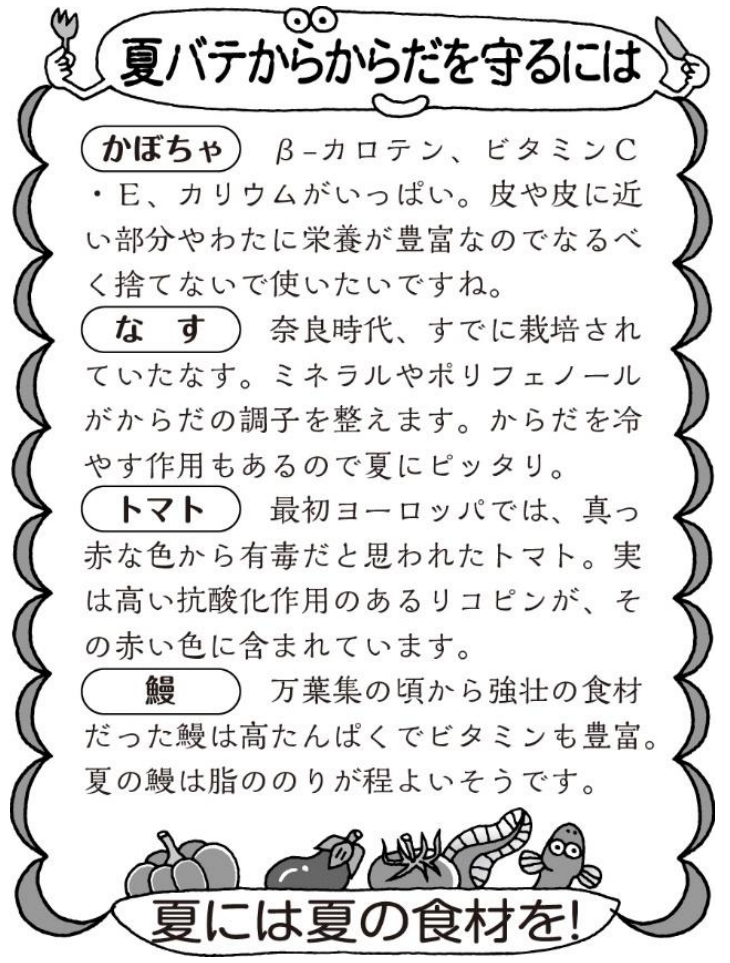 夏バテからからだを守るには
かぼちゃ β-カロテン、ビタミンC
・E、カリウムがいっぱい。皮や皮に近
い部分やわたに栄養が豊富なのでなるべ
く捨てないで使いたいですね。
なす 奈良時代、すでに栽培され
ていたなす。ミネラルやポリフェノール
がからだの調子を整えます。からだを冷
やす作用もあるので夏にピッタリ。
トマト 最初ヨーロッパでは、真っ
赤な色から有毒だと思われたトマト。実
は高い抗酸化作用のあるリコピンが、そ
の赤い色に含まれています。
鰻 万葉集の頃から強壮の食材
だった鰻は高たんぱくでビタミンも豊富。
夏の鰻は脂ののりが程よいそうです。
夏には夏の食材を!